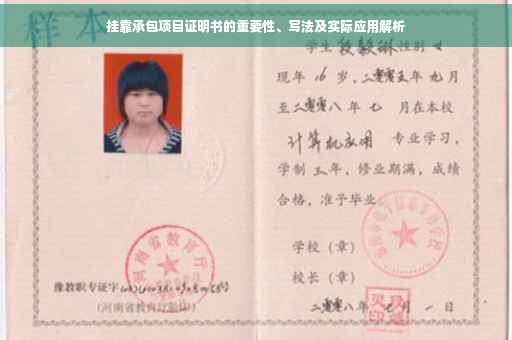 挂靠承包项目证明书的重要性、写法及实际应用解析
样本
学生 段毅琳 性别 女
现年 16 岁，二零零五年九月
至二零零八年七 月在本校
计算机应用 专业学习，
学制三年，修业期满，成绩
合格，准予毕业
学校（章）
校长（章）
二零零八年七月一日
河南省教育厅
豫教职专证字
（河南省教育厅验印）